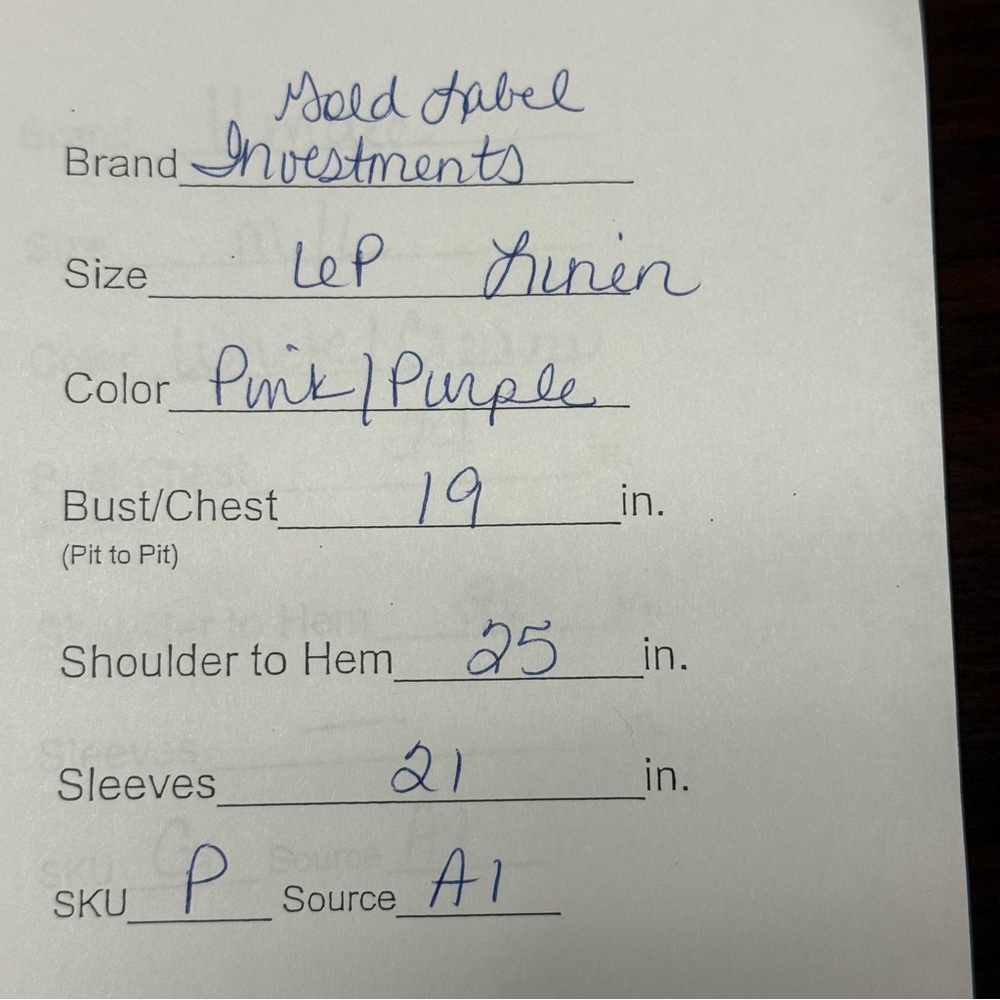 Gold Label
Brand Investments
Size 6P Linen
Color Pink/Purple
Bust/Chest 19 in.
(Pit to Pit)
Shoulder to Hem 25 in.
Sleeves 21 in.
SKU P Source A1